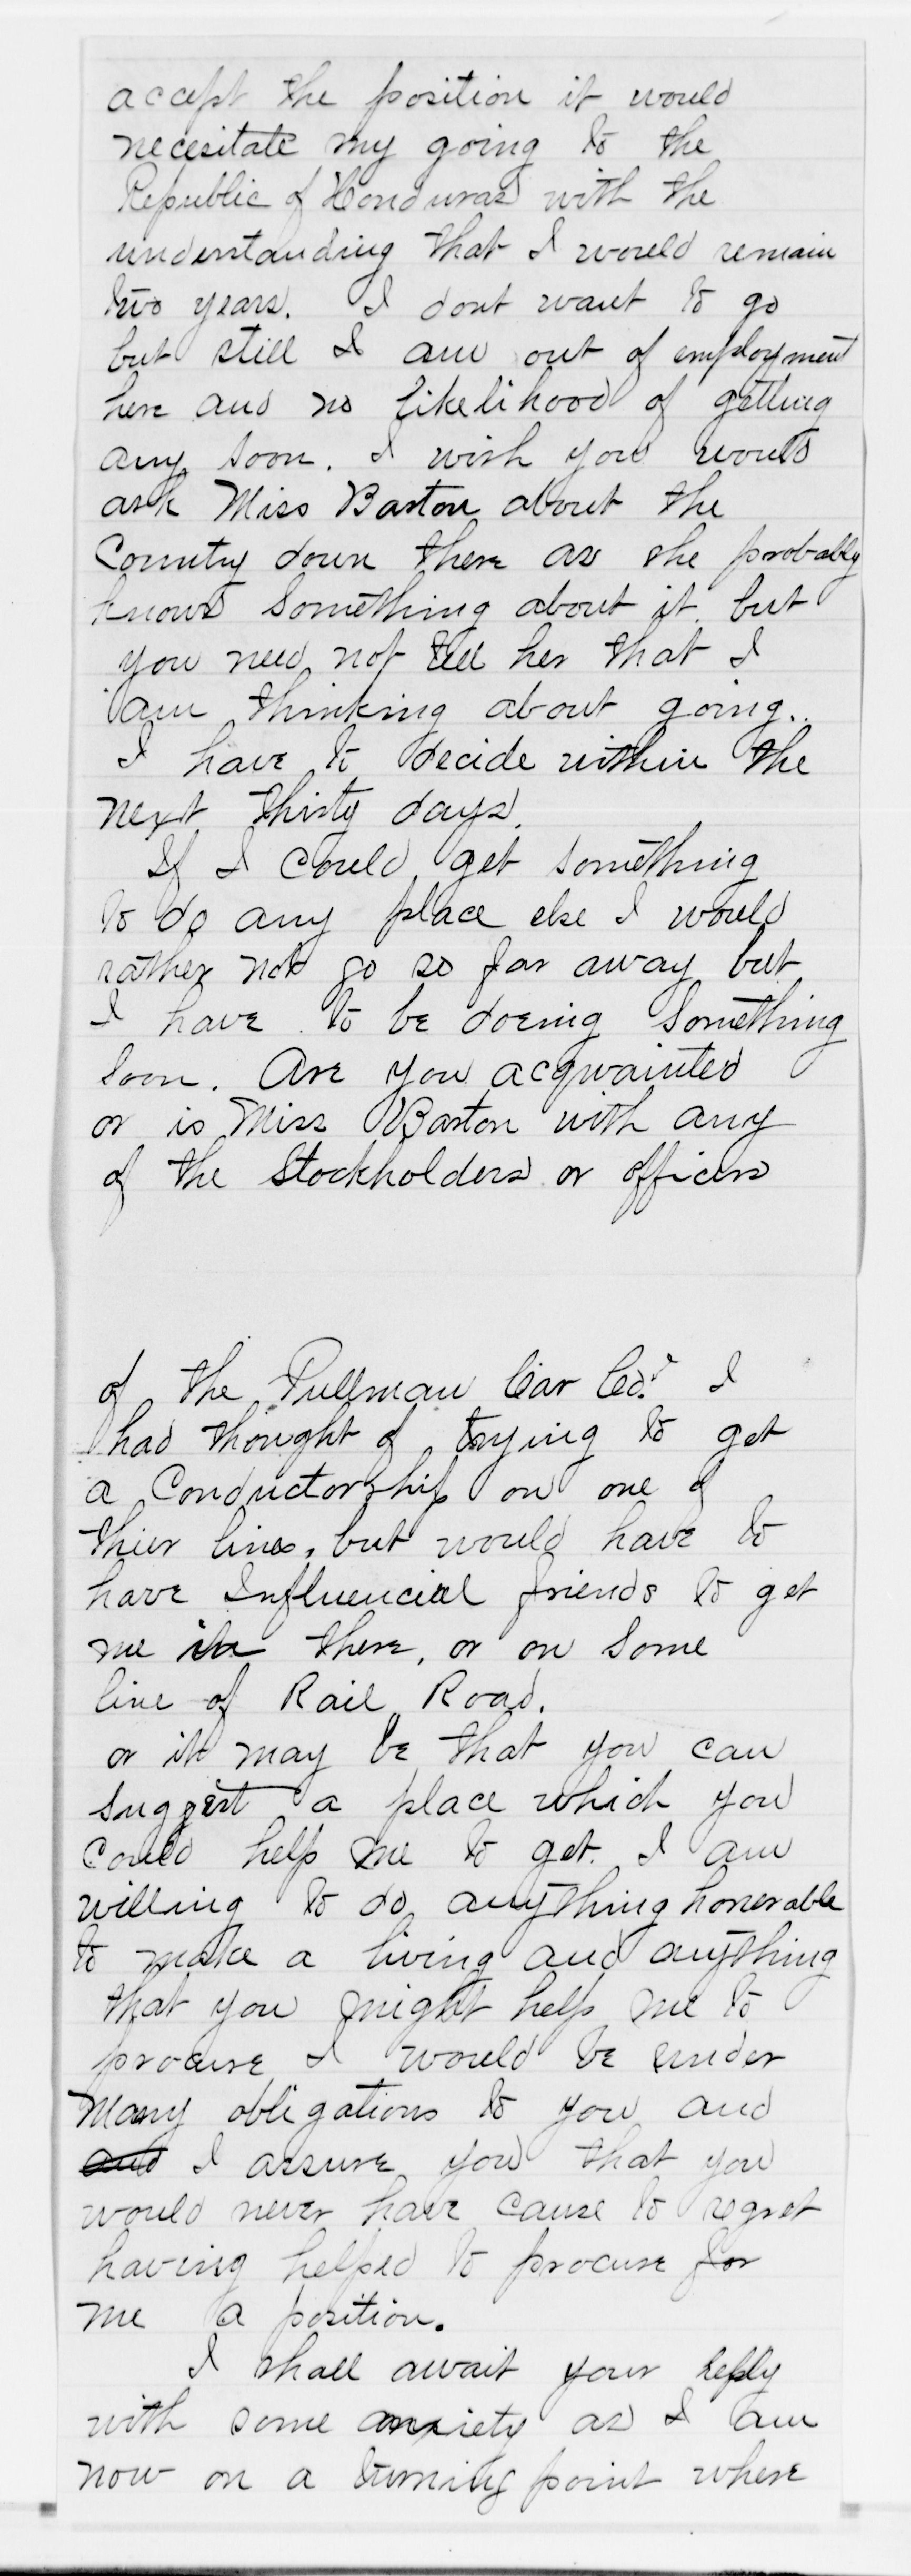 accept the position it would
necesitate my going to the
Republic of Honduras with the
understanding that I would remain
two years. I dont want to go
but still I am out of employment
here and no likelihood of getting
any soon. I wish you would
ask Miss Barton about the
Country down there as she probably
knows something about it. but
you need not tell her that I
am thinking about going.
I have to decide within the
next thirty days.
If I could get something
to do any place else I would
rather not go so far away but
I have to be doeing something
soon. Are you acquainted
or is Miss Barton with any
of the Stockholders or officers
of the Pullman Car Co.? I
had thought of trying to get
a Conductorship on one of
thier lines, but would have to
have Influencial friends to get
me in there, or on some
line of Rail Road.
or it may be that you can
suggest a place which you
could help me to get. I am
willing to do anything honorable
to make a living and anything
that you might help me to
procure I would be under
many obligations to you and
and I assure you that you
would never have cause to regret
having helped to procure for
me a position.
I shall await your reply
with some anxiety as I am
now on a turning point where